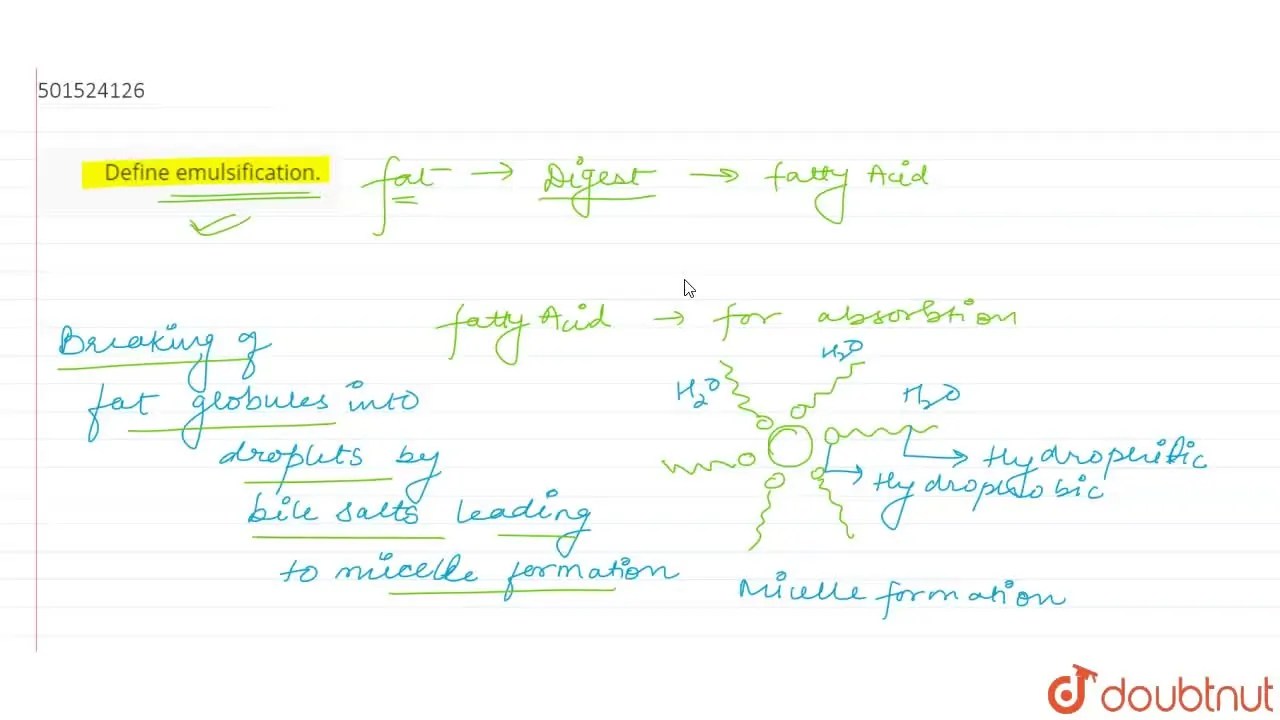 501524126
Define emulsification.
fat → Digest → fatty Acid
fatty Acid → for absorbtion
Breaking of
fat globules into
droplets by
bile salts leading
to micelle formation
H₂O
H₂O
H₂O
Hydrophobic
Micelle formation
doubtnut